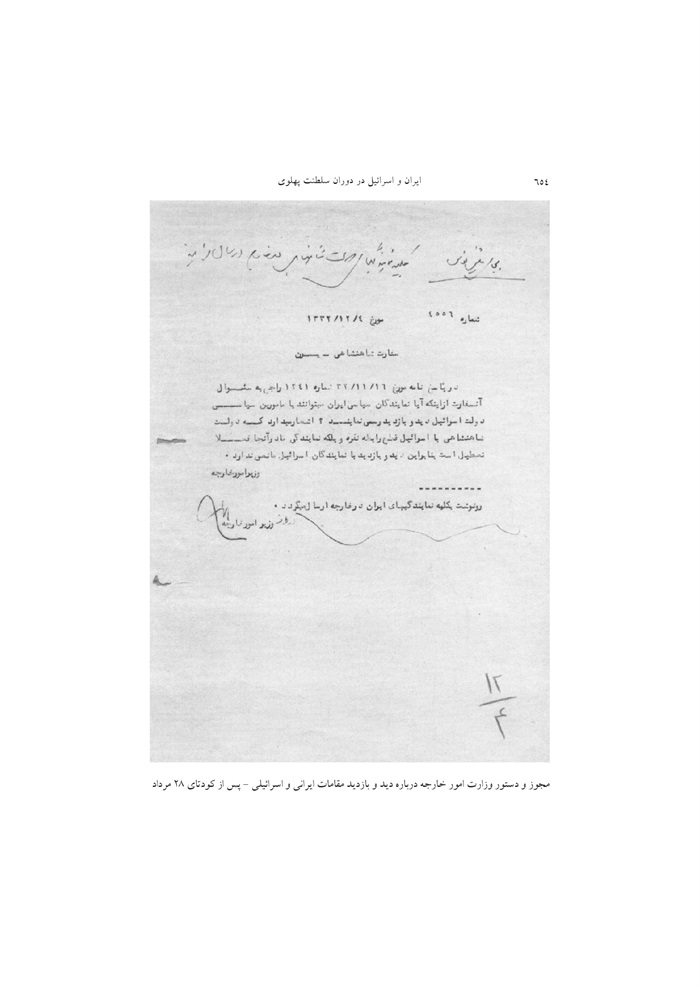 ایران و اسرائیل در دوران سلطنت پهلوی
٦٥٤
شماره ٤٥٥٦ مورخ ١٣٣٢/١٢/٤
سفارت شاهنشاهی - بـــــرن
در پاسخ نامه مورخ ٣٢/١١/١٦ شماره ١٢٤١ راجع به سئـــوال
آنسفارت ازاینکه آیا نمایندگان سیاسی ایران میتوانند با مامورین سیاســـی
دولت اسرائیل دید و بازدید رسمی نماینـــد ؟ اشعارمیدارد کـــه دولـــت
شاهنشاهی با اسرائیل قطع رابطه نکرده و بلکه نمایندگی ما در آنجا فعـــلا
تعطیل است بنابراین دید و بازدید با نمایندگان اسرائیل مانعی ندارد ٠
وزیرامورخارجه
----------
رونوشت بکلیه نمایندگیهای ایران در خارجه ارسال میگردد ٠
وزیر امورخارجه
١٢
٤
مجوز و دستور وزارت امور خارجه درباره دید و بازدید مقامات ایرانی و اسرائیلی - پس از کودتای ٢٨ مرداد